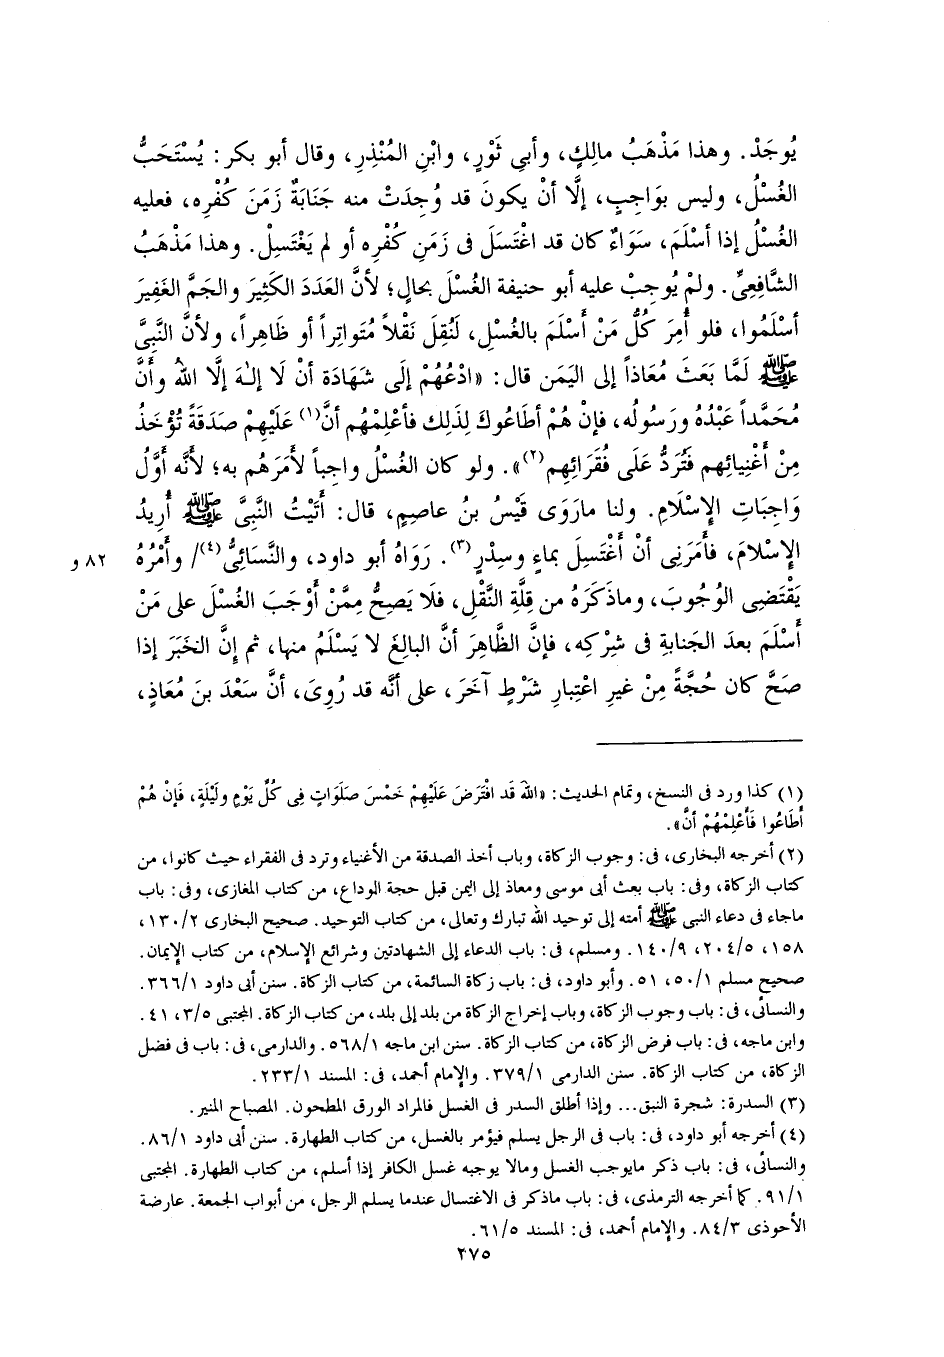 يُوجَدْ. وهذا مَذْهَبُ مالِكٍ، وأبي ثَوْرٍ، وابْنِ المُنْذِرِ، وقال أبو بكر: يُسْتَحَبُّ
الغُسْلُ، وليس بوَاجِبٍ، إلَّا أنْ يكونَ قد وُجِدَتْ منه جَنَابَةٌ زَمَنَ كُفْرِه، فعليه
الغُسْلُ إذا أسْلَمَ، سَوَاءٌ كان قد اغْتَسَلَ فى زَمَنِ كُفْرِه أو لم يَغْتَسِلْ. وهذا مَذْهَبُ
الشَّافِعِيِّ. ولمْ يُوجِبْ عليه أبو حنيفة الغُسْلَ بحالٍ؛ لأنَّ العَدَدَ الكَثِيرَ والجَمَّ الغَفِيرَ
أسْلَمُوا، فلو أُمِرَ كُلُّ مَنْ أَسْلَمَ بالغُسْلِ، لَنُقِلَ نَقْلاً مُتَواتِراً أو ظَاهِراً، ولأنَّ النَّبِيَّ
ﷺ لَمَّا بَعَثَ مُعَاذاً إلى اليَمَن قال: «ادْعُهُمْ إلَى شَهَادَة أنْ لَا إلٰهَ إلَّا اللهُ وأنَّ
مُحَمَّداً عَبْدُهُ ورَسُولُه، فإنْ هُمْ أطَاعُوكَ لِذَلِك فأعْلِمْهُم أنَّ(١) عَلَيْهِمْ صَدَقَةً تُؤْخَذُ
مِنْ أغْنِيائِهم فَتُرَدُّ عَلَى فُقَرَائِهِم(٢)». ولو كان الغُسْلُ واجِباً لأمَرَهُم به؛ لأنَّه أوَّلُ
وَاجِبَاتِ الإسْلَامِ. ولنا مارَوَى قَيْسُ بنُ عاصِمٍ، قال: أَتَيْتُ النَّبِيَّ ﷺ أُرِيدُ
الإسْلامَ، فأمَرَنِى أنْ أَغْتَسِلَ بماءٍ وسِدْرٍ(٣). رَوَاهُ أبو داود، والنَّسَائِيُّ(٤)/ وأَمْرُهُ ٨٢ و
يَقْتَضِى الوُجُوبَ، وماذَكَرَهُ من قِلَّةِ النَّقْلِ، فلا يَصِحُّ مِمَّنْ أَوْجَبَ الغُسْلَ على مَنْ
أَسْلَمَ بعدَ الجَنابةِ فى شِرْكِه، فإنَّ الظَّاهِرَ أنَّ البالِغَ لا يَسْلَمُ منها، ثم إنَّ الخَبَرَ إذا
صَحَّ كان حُجَّةً مِنْ غيرِ اعْتِبارِ شَرْطٍ آخَرَ، على أنَّه قد رُوِىَ، أنَّ سَعْدَ بنَ مُعَاذٍ،
(١) كذا ورد فى النسخ، وتمام الحديث: «اللهَ قَد افْتَرَضَ عَلَيْهِمْ خَمْسَ صَلَوَاتٍ فِى كُلِّ يَوْمٍ ولَيْلَةٍ، فَإنْ هُمْ
أَطَاعُوا فَأَعْلِمْهُمْ أنَّ».
(٢) أخرجه البخارى، فى: وجوب الزكاة، وباب أخذ الصدقة من الأغنياء وترد فى الفقراء حيث كانوا، من
كتاب الزكاة، وفى: باب بعث أبى موسى ومعاذ إلى اليمن قبل حجة الوداع، من كتاب المغازى، وفى: باب
ماجاء فى دعاء النبى ﷺ أمته إلى توحيد الله تبارك وتعالى، من كتاب التوحيد. صحيح البخارى ١٣٠/٢،
١٥٨، ٢٠٤/٥، ١٤٠/٩. ومسلم، فى: باب الدعاء إلى الشهادتين وشرائع الإسلام، من كتاب الإيمان.
صحيح مسلم ٥٠/١، ٥١. وأبو داود، فى: باب زكاة السائمة، من كتاب الزكاة. سنن أبى داود ٣٦٦/١.
والنسائى، فى: باب وجوب الزكاة، وباب إخراج الزكاة من بلد إلى بلد، من كتاب الزكاة. المجتبى ٣/٥، ٤١.
وابن ماجه، فى: باب فرض الزكاة، من كتاب الزكاة. سنن ابن ماجه ٥٦٨/١. والدارمى، فى: باب فى فضل
الزكاة، من كتاب الزكاة. سنن الدارمى ٣٧٩/١. والإمام أحمد، فى: المسند ٢٣٣/١.
(٣) السدرة: شجرة النبق... وإذا أطلق السدر فى الغسل فالمراد الورق المطحون. المصباح المنير.
(٤) أخرجه أبو داود، فى: باب فى الرجل يسلم فيؤمر بالغسل، من كتاب الطهارة. سنن أبى داود ٨٦/١.
والنسائى، فى: باب ذكر مايوجب الغسل ومالا يوجبه غسل الكافر إذا أسلم، من كتاب الطهارة. المجتبى
٩١/١. كما أخرجه الترمذى، فى: باب ماذكر فى الاغتسال عندما يسلم الرجل، من أبواب الجمعة. عارضة
الأحوذى ٨٤/٣. والإمام أحمد، فى: المسند ٦١/٥.
٢٧٥